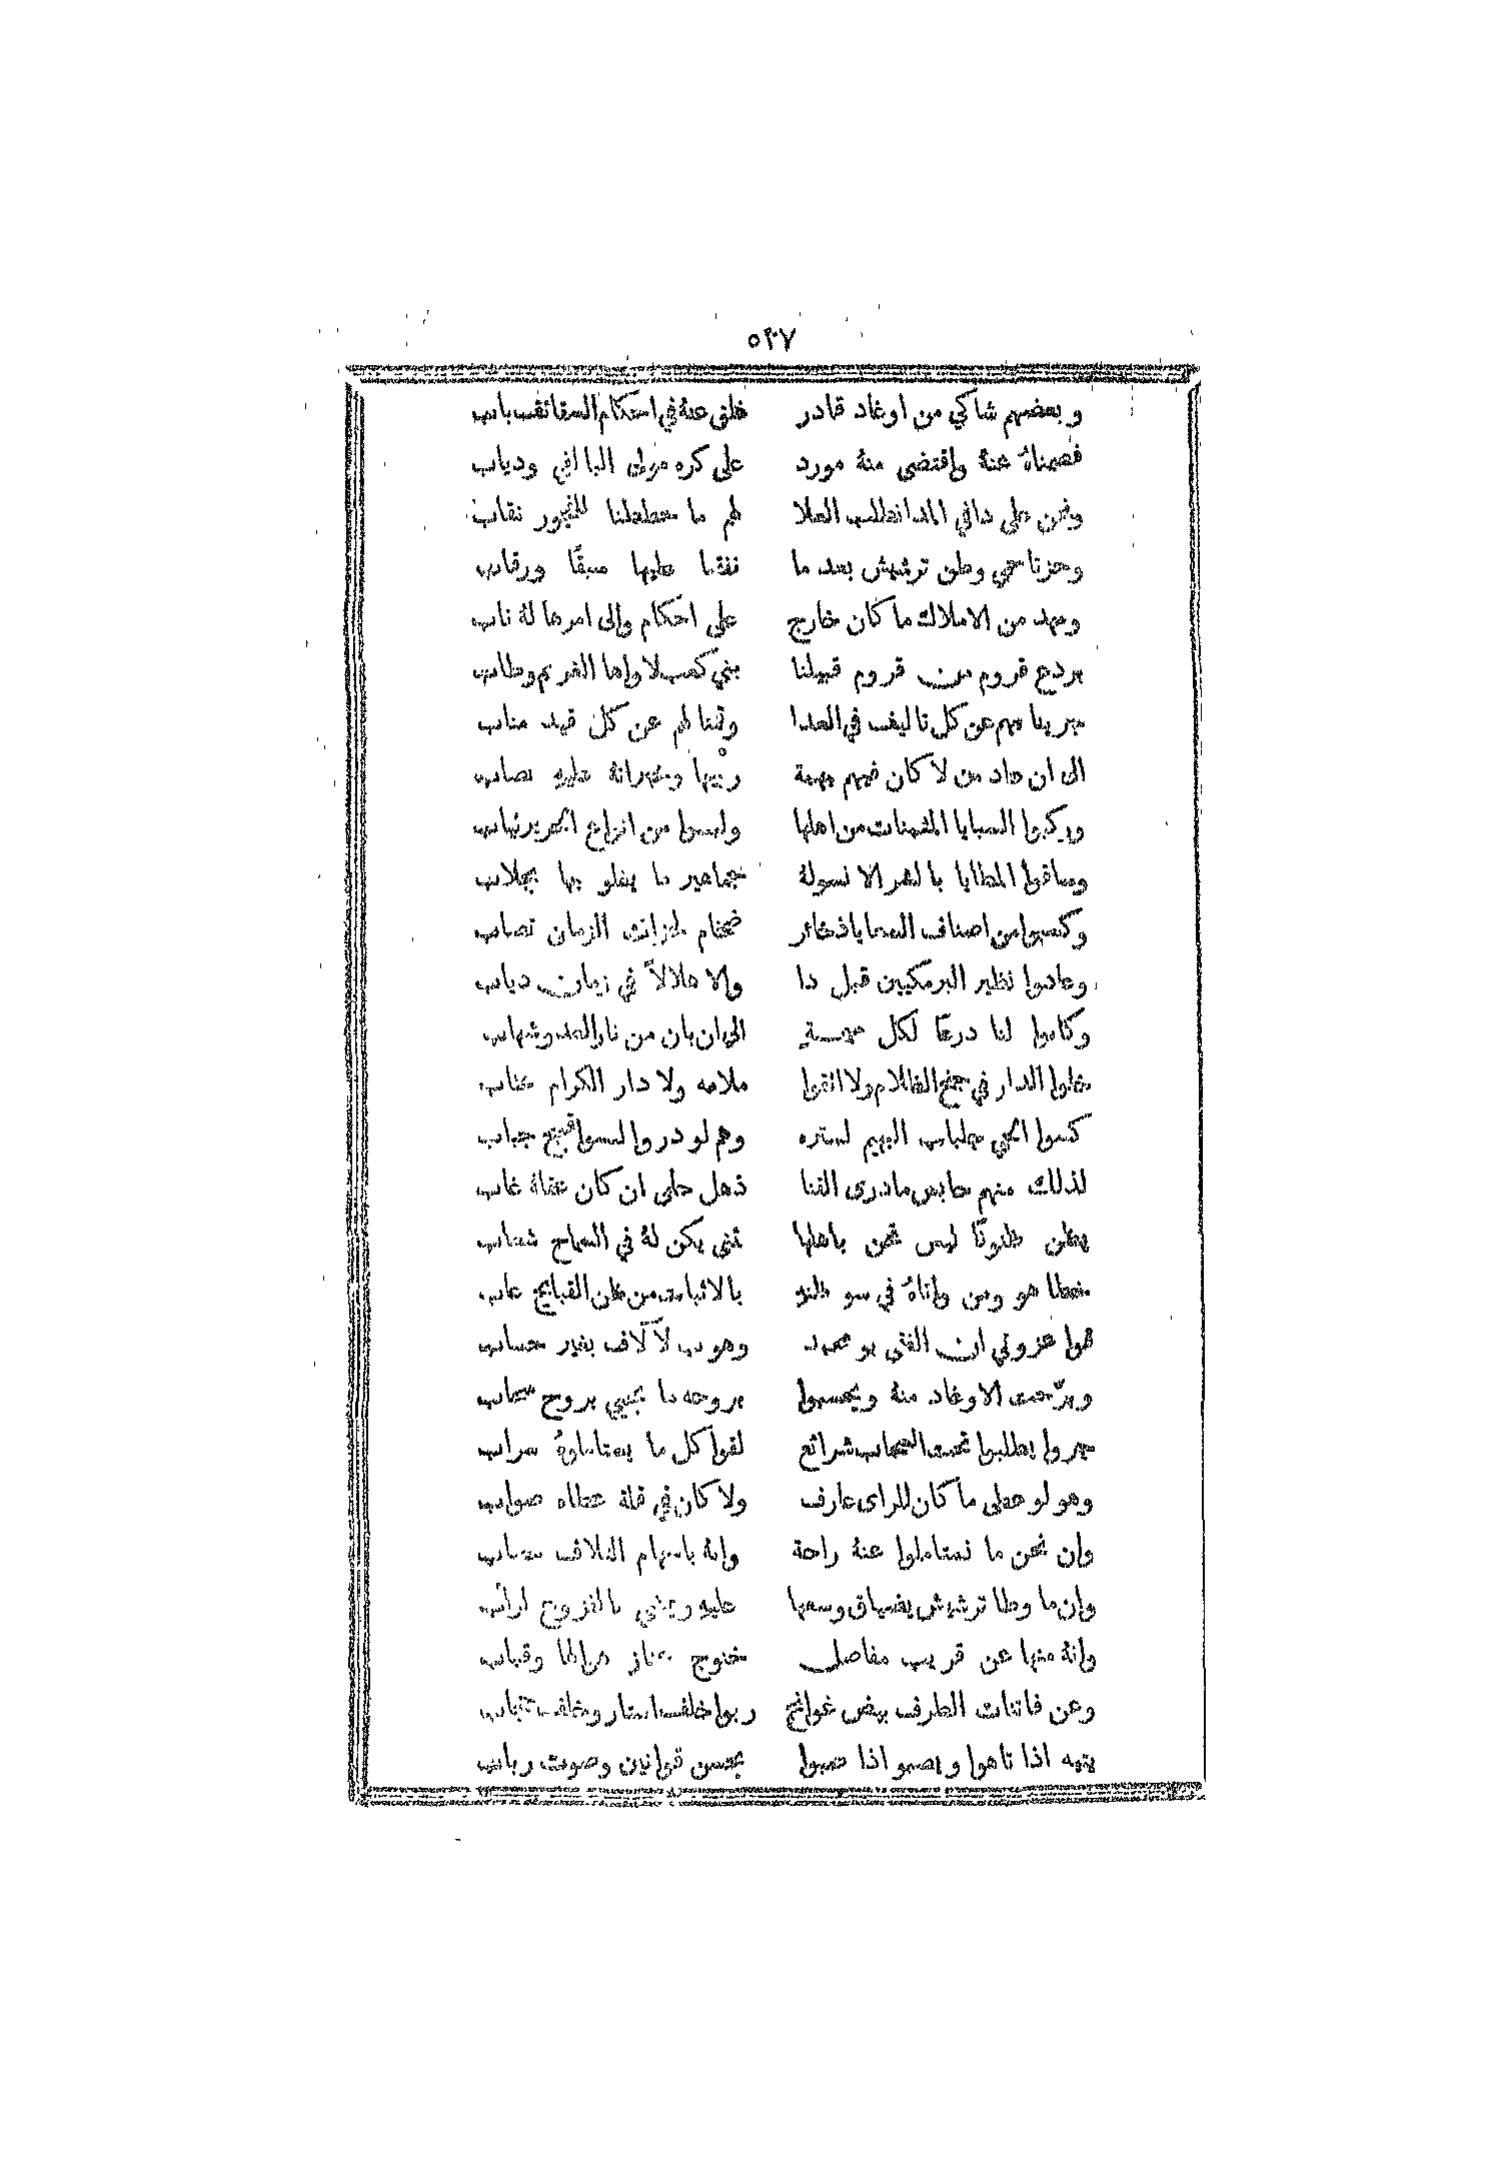 ٥٣٧
وبعضهم شاكي من اوغاد قادر غلق عنهُ في احكام السقائف باب
فصمناهُ عنهُ واقتضى منهُ مورد على كره مولى البالقي ودياب
ونحن على داني المدا نطلب العلا لهم ما حططنا للفجور نقاب
وحزنا حمى وطن ترشيش بعد ما نفقنا عليها سبقًا ورقاب
ومهد من الاملاك ما كان خارج على احكام والى امرها لهُ ناب
بردع قروم من قروم قبيلنا بني كعب لاواها الغريم وطاب
جرينا بهم عن كل تاليف في العدا وقمنا لهم عن كل قيد مناب
الى ان عاد من لا كان فيهم بهمة ربيها وخيراتهُ عليه نصاب
وركبوا السبايا المثمنات من اهلها ولبسوا من انواع الحرير ثياب
وساقوا المطايا بالشرا لا نسولهُ جماهير ما يغلو بها بجلاب
وكسبوا من اصناف السعايا ذخائر ضخام لحزات الزمان تصاب
وعادوا نظير البرمكيين قبل دا والا هلالاً في زمان دياب
وكانوا لنا درعًا لكل مهمة الى ان بان من نار العدو شهاب
خلوا الدار في جنح الظلام ولا اتقوا ملامه ولا دار الكرام عتاب
كسوا الحي جلباب البهيم لستره وهم لو دروا لبسوا قبيح جباب
لذلك منهم حابس ما درى القنا ذهل حلمى ان كان عقلهُ غاب
يظن ظنونًا ليس نحن باهلها تمنى يكن لهُ في السماح شعاب
خطا هو ومن واتاهُ في سو ظنه بالاثبات من ظن القبايح عاب
فوا عزوتي ان الفتى بو محمد وهوب لآلاف بغير حساب
وبرّحت الاوغاد منهُ ويحسبوا بروحه ما يحيي بروح سحاب
جروا يطلبوا تحت السحاب شرائع لقوا كل ما يستاملوهُ سراب
وهو لو عطى ما كان للراى عارف ولا كان في قلة عطاه صواب
وان نحن ما نستاملوا عنهُ راحة وانهُ باسهام التلاف مصاب
وان ما وطا ترشيش يضياق وسعها عليه ويمشي بالفزوع لزاب
وانهُ منها عن قريب مفاصل خنوج عناز هوالها وقباب
وعن فاتنات الطرف بيض غوانج ربوا خلف استار وخلف حجاب
يتيه اذا تاهوا ويصبو اذا صبوا بحسن قوانين وصوت رباب